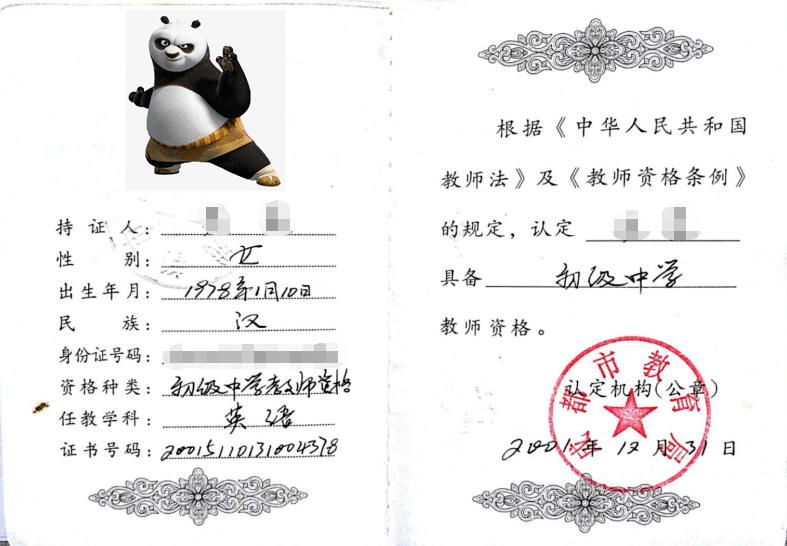 持证人：
性别：
出生年月：1978年1月10日
民族：汉
身份证号码：
资格种类：初级中学教师资格
任教学科：英语
证书号码：20015110131004378
根据《中华人民共和国
教师法》及《教师资格条例》
的规定，认定
具备初级中学
教师资格。
都市教育局
认定机构(公章)
2001年12月31日